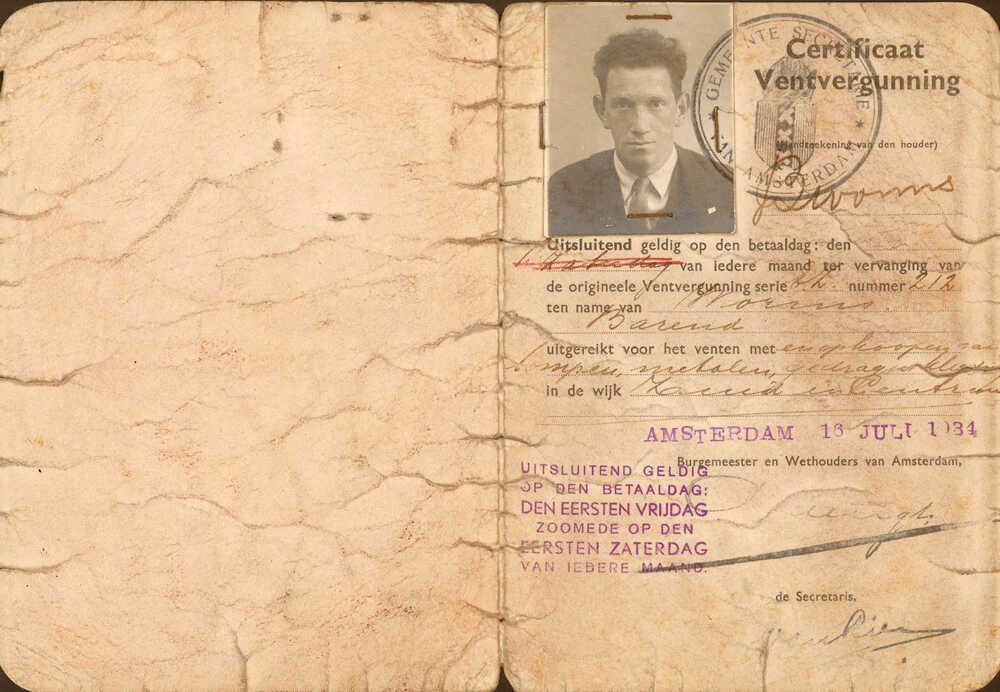 GEMEENTE SECRETARIE
VAN AMSTERDAM
Certificaat
Ventvergunning
(Handteekening van den houder)
B Worms
Uitsluitend geldig op den betaaldag: den
1e Zaterdag van iedere maand ter vervanging van
de origineele Ventvergunning serie nummer 212
ten name van Worms
Barend
uitgereikt voor het venten met en opkoopen van
lompen, metalen, gedragen kleeren
in de wijk Zuid en Centrum
AMSTERDAM 16 JULI 1934
Burgemeester en Wethouders van Amsterdam,
UITSLUITEND GELDIG
OP DEN BETAALDAG:
DEN EERSTEN VRIJDAG
ZOOMEDE OP DEN
EERSTEN ZATERDAG
VAN IEDERE MAAND.
de Secretaris,